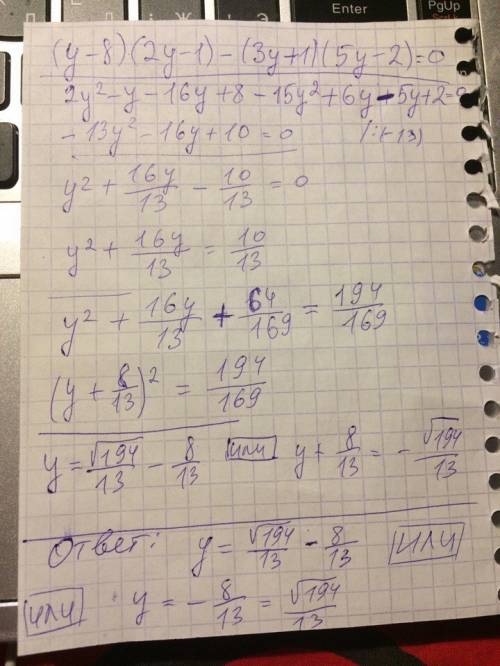 Enter
PgUp
(y-8)(2y-1)-(3y+1)(5y-2)=0
2y²-y-16y+8-15y²+6y-5y+2=0
-13y²-16y+10=0 /:(-13)
y²+16y/13-10/13=0
y²+16y/13=10/13
y²+16y/13+64/169=194/169
(y+8/13)²=194/169
y=√194/13-8/13 или y+8/13=-√194/13
Ответ: y=√194/13-8/13 или
или y=-8/13=√194/13